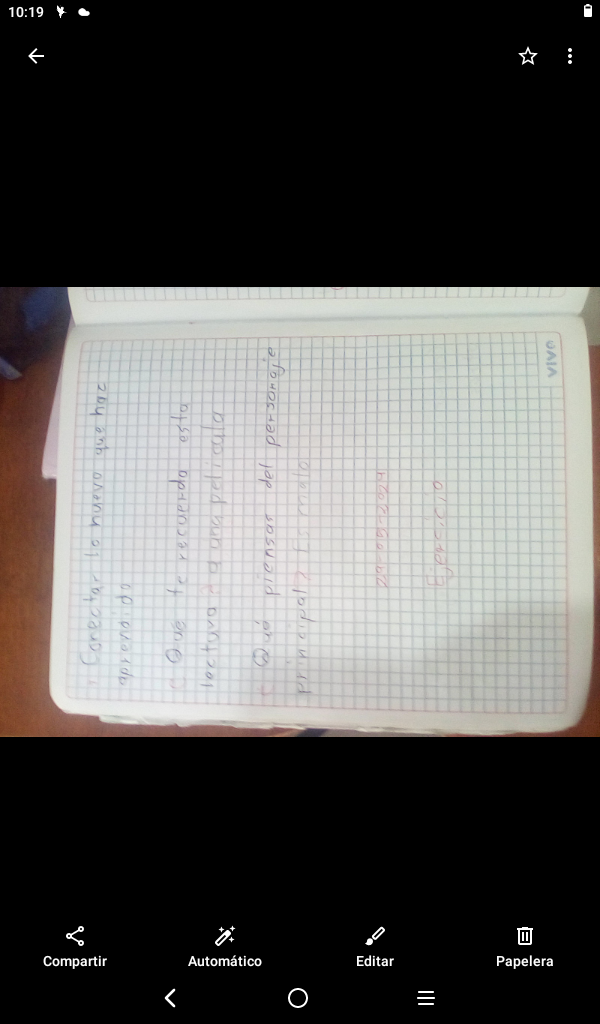 10:19
Conectar lo nuevo que haz
aprendido
¿ Que te recuerda esta
lectura ? a una pelicula
¿ Qué piensar del personaje
principal ? Es malo
24-09-2024
Ejercicio
VIVA
Compartir
Automático
Editar
Papelera